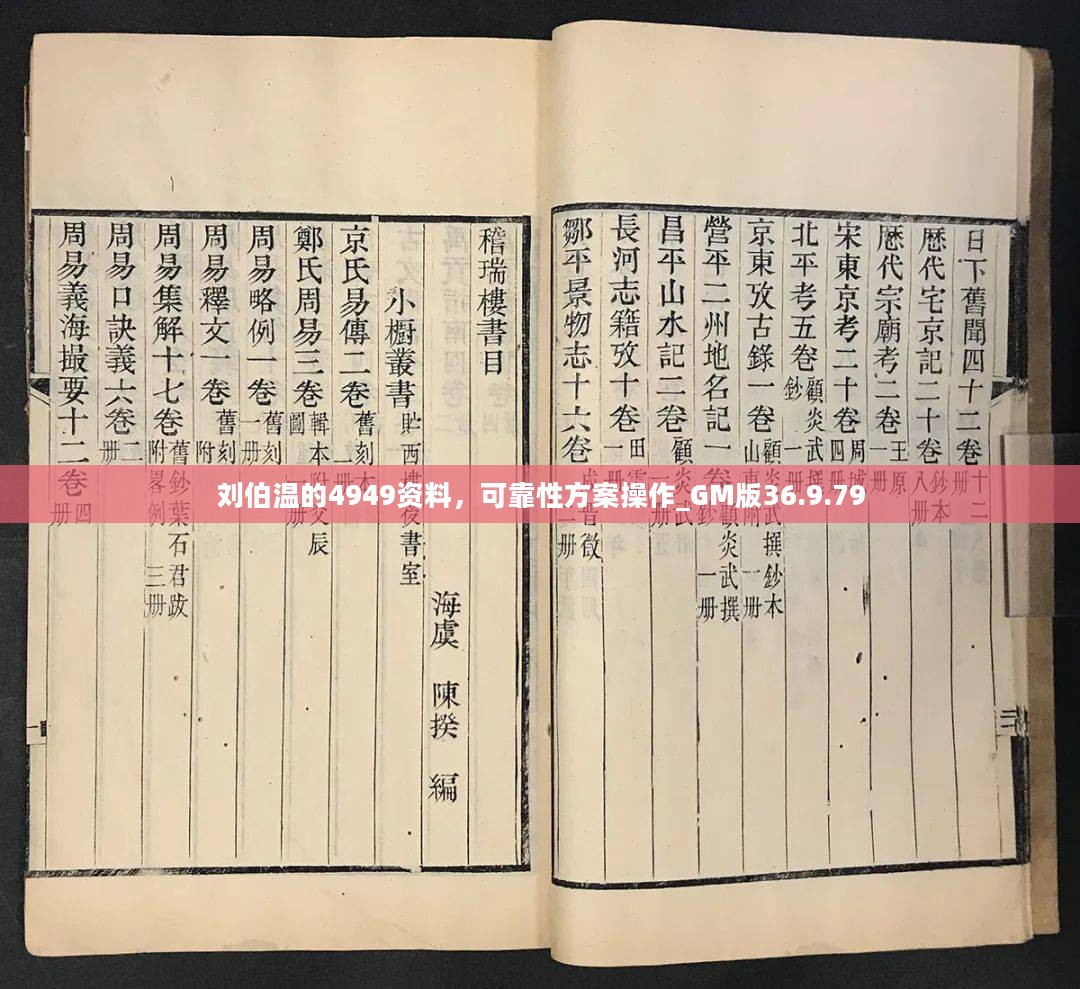 日下舊聞四十二卷 十二册
歷代宅京記二十卷 鈔本 八册
歷代宗廟考二卷 王原 一册
宋東京考二十卷 周城 四册
北平考五卷 顧炎武撰 鈔 一册
京東攷古錄一卷 顧炎武撰鈔本 山東附 一册
營平二州地名記一卷 顧炎武撰 鈔 一册
昌平山水記二卷 顧炎武
長河志籍攷十卷 田
鄒平景物志十六卷 成晉徵 册
稽瑞樓書目
海虞 陳揆 編
小櫥叢書 貯西 後書室
京氏易傳二卷 舊刻
鄭氏周易三卷 輯本附 辰 圖
周易略例一卷 舊刻 一册
周易釋文一卷 舊刻 附
周易集解十七卷 舊鈔葉石君跋 附畧例 三册
周易口訣義六卷 二册
周易義海撮要十二卷 四册
刘伯温的4949资料，可靠性方案操作_GM版36.9.79